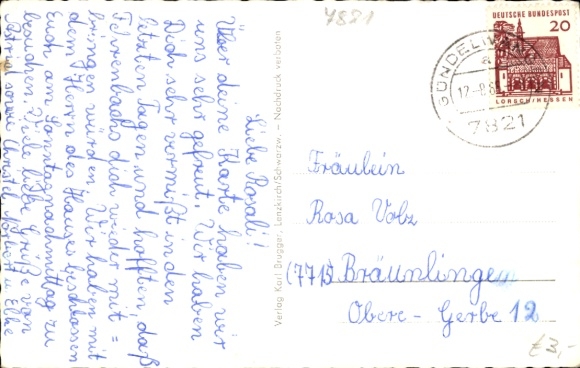 7821
Liebe Rosali!
Über deine Karte haben wir
uns sehr gefreut. Wir haben
Dich sehr vermißt in den
letzten Tagen und hofften, daß
Führenbachs dich wieder mit=
bringen würden. Wir haben mit
dem Herrn des Hauses beschlossen
Euch am Sonntagnachmittag zu
besuchen. Viele liebe Grüße von
Christel
Elke
Verlag Karl Brugger, Lenzkirch/Schwarzw. – Nachdruck verboten
DEUTSCHE BUNDESPOST
20
LORSCH/HESSEN
GÜNDELWANG
a
17.-8.6
7821
Fräulein
Rosa Volz
(7715) Bräunlingen
Obere - Gerbe 12
£3,-